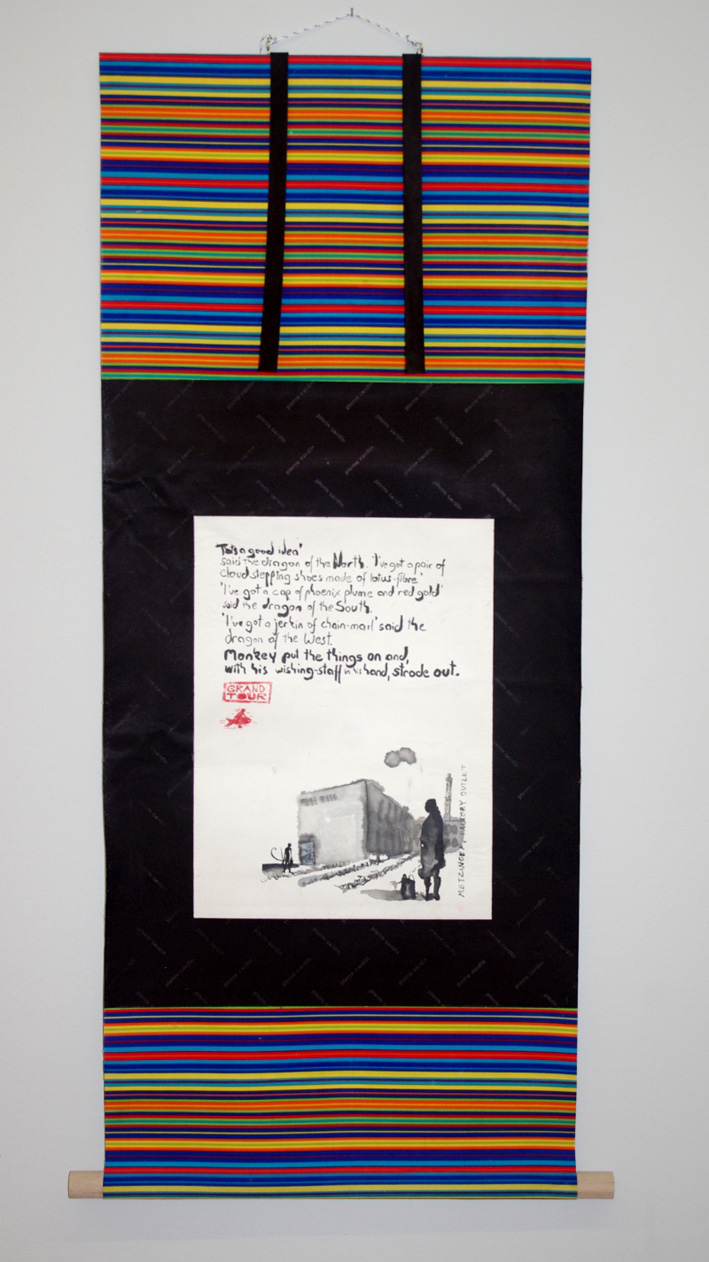 'Tis a good idea'
said the dragon of the North. 'I've got a pair of
cloud stepping shoes made of lotus-fibre'
'I've got a cap of phoenix plume and red gold'
said the dragon of the South.
'I've got a jerkin of chain-mail' said the
dragon of the West.
Monkey put the things on and,
with his wishing-staff in his hand, strode out.
GRAND
TOUR
METZINGEN FACTORY OUTLET